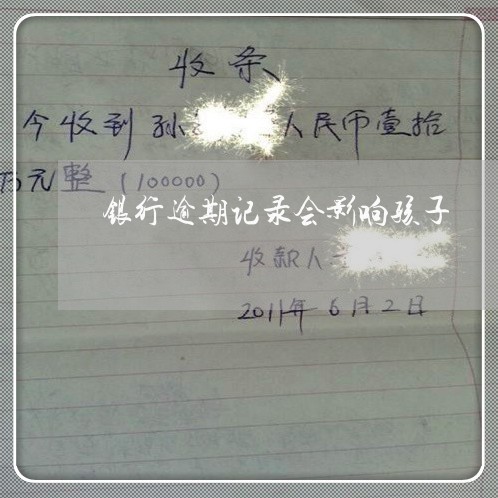 收条
今收到孙 人民币壹拾
万元整（100000）
银行逾期记录会影响孩子
收款人
2011年6月2日